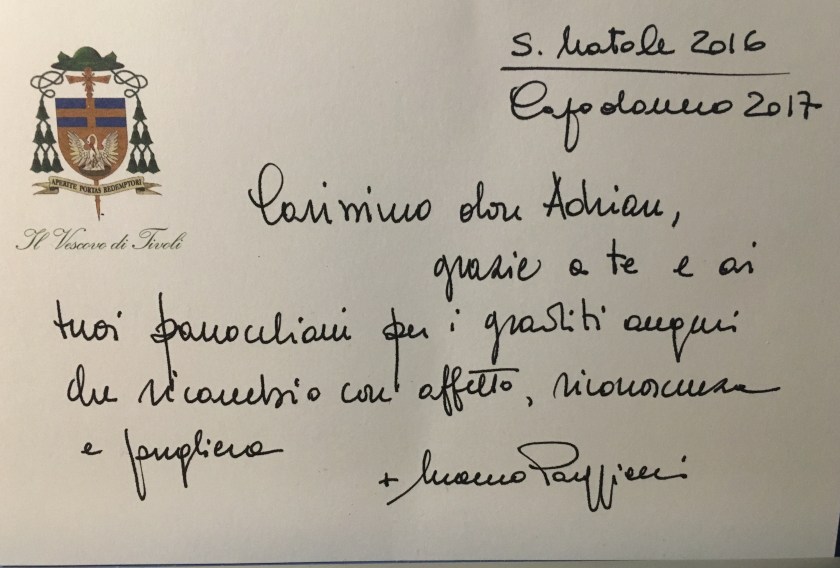 S. Natale 2016
Capodanno 2017
APERITE PORTAS REDEMPTORI
Il Vescovo di Tivoli
Carissimo don Adrian,
grazie a te e ai
tuoi parrocchiani per i graditi auguri
che ricambio con affetto, riconoscenza
e preghiera
+ Mauro Parmeggiani